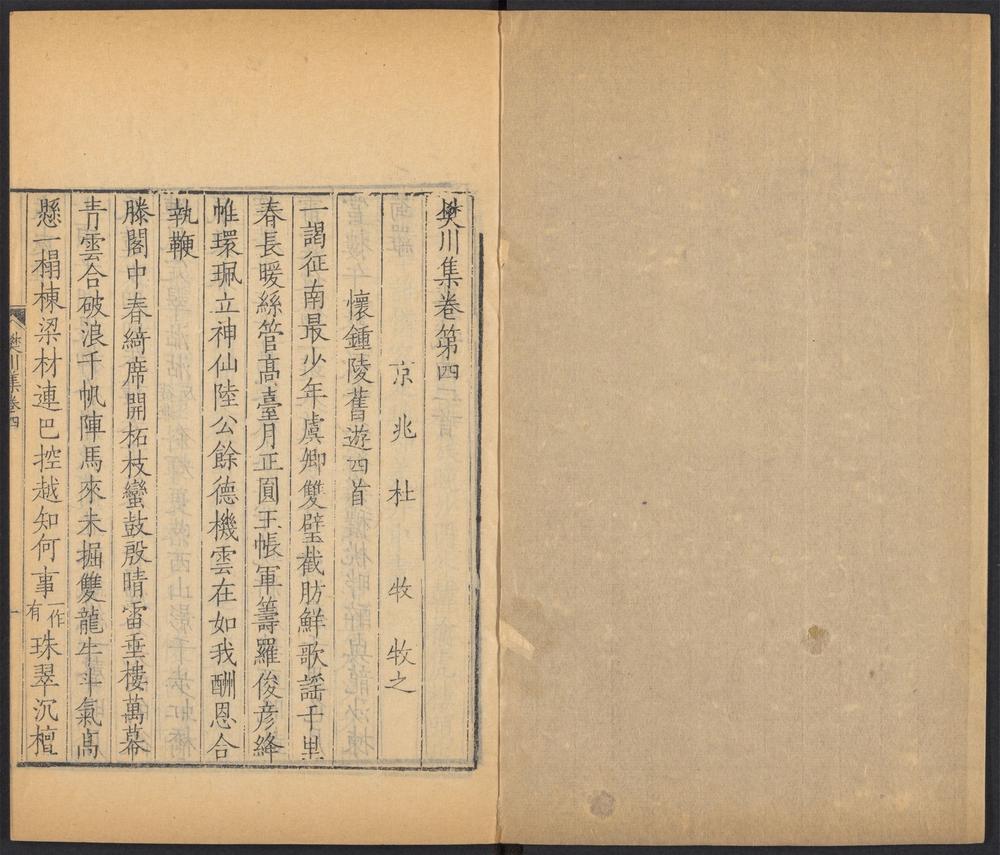 樊川集卷第四
京兆杜牧牧之
懷鍾陵舊遊四首
一謁征南最少年虞卿雙璧截肪鮮歌謠千里
春長暖絲管高臺月正圓玉帳軍籌羅俊彦絳
帷環珮立神仙陸公餘德機雲在如我酬恩合
執鞭
滕閣中春綺席開柘枝蠻鼓殷晴雷垂樓萬幕
青雲合破浪千帆陣馬來未掘雙龍牛斗氣高
懸一榻棟梁材連巴控越知何事一作有珠翠沉檀
樊川集卷四
一